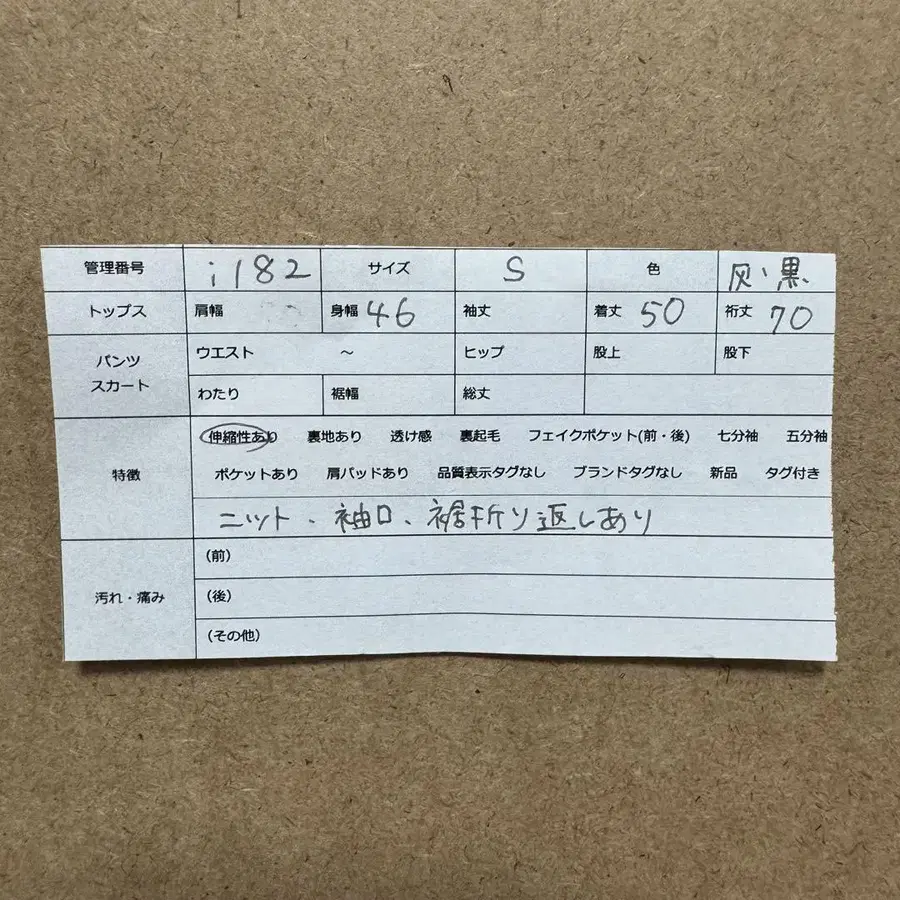 管理番号 i182 サイズ S 色 灰、黒
トップス 肩幅 身幅 46 袖丈 着丈 50 裄丈 70
パンツ スカート
ウエスト ～ ヒップ 股上 股下
わたり 裾幅 総丈
特徴
伸縮性あり 裏地あり 透け感 裏起毛 フェイクポケット(前・後) 七分袖 五分袖
ポケットあり 肩パッドあり 品質表示タグなし ブランドタグなし 新品 タグ付き
ニット、袖口、裾折り返しあり
汚れ・痛み
(前)
(後)
(その他)